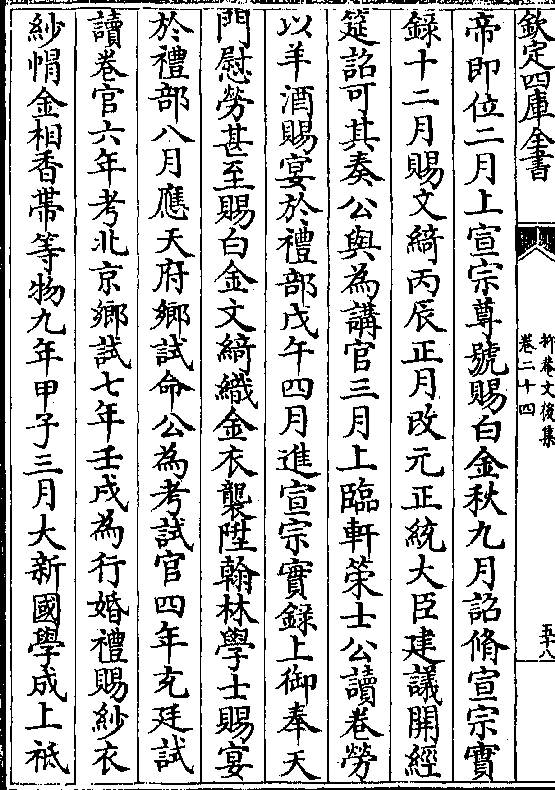 欽定四庫全書
抑菴文後集
卷二十四
五十八
帝即位二月上宣宗尊號賜白金秋九月詔脩宣宗實
錄十二月賜文綺丙辰正月改元正統大臣建議開經
筵詔可其奏公與為講官三月上臨軒䇿士公讀卷勞
以羊酒賜宴於禮部戊午四月進宣宗實録上御奉天
門慰勞甚至賜白金文綺織金衣襲陞翰林學士賜宴
於禮部八月應天府鄉試命公為考試官四年充廷試
讀卷官六年考北京鄉試七年壬戌為行婚禮賜紗衣
紗㡌金相香帶等物九年甲子三月大新國學成上祗